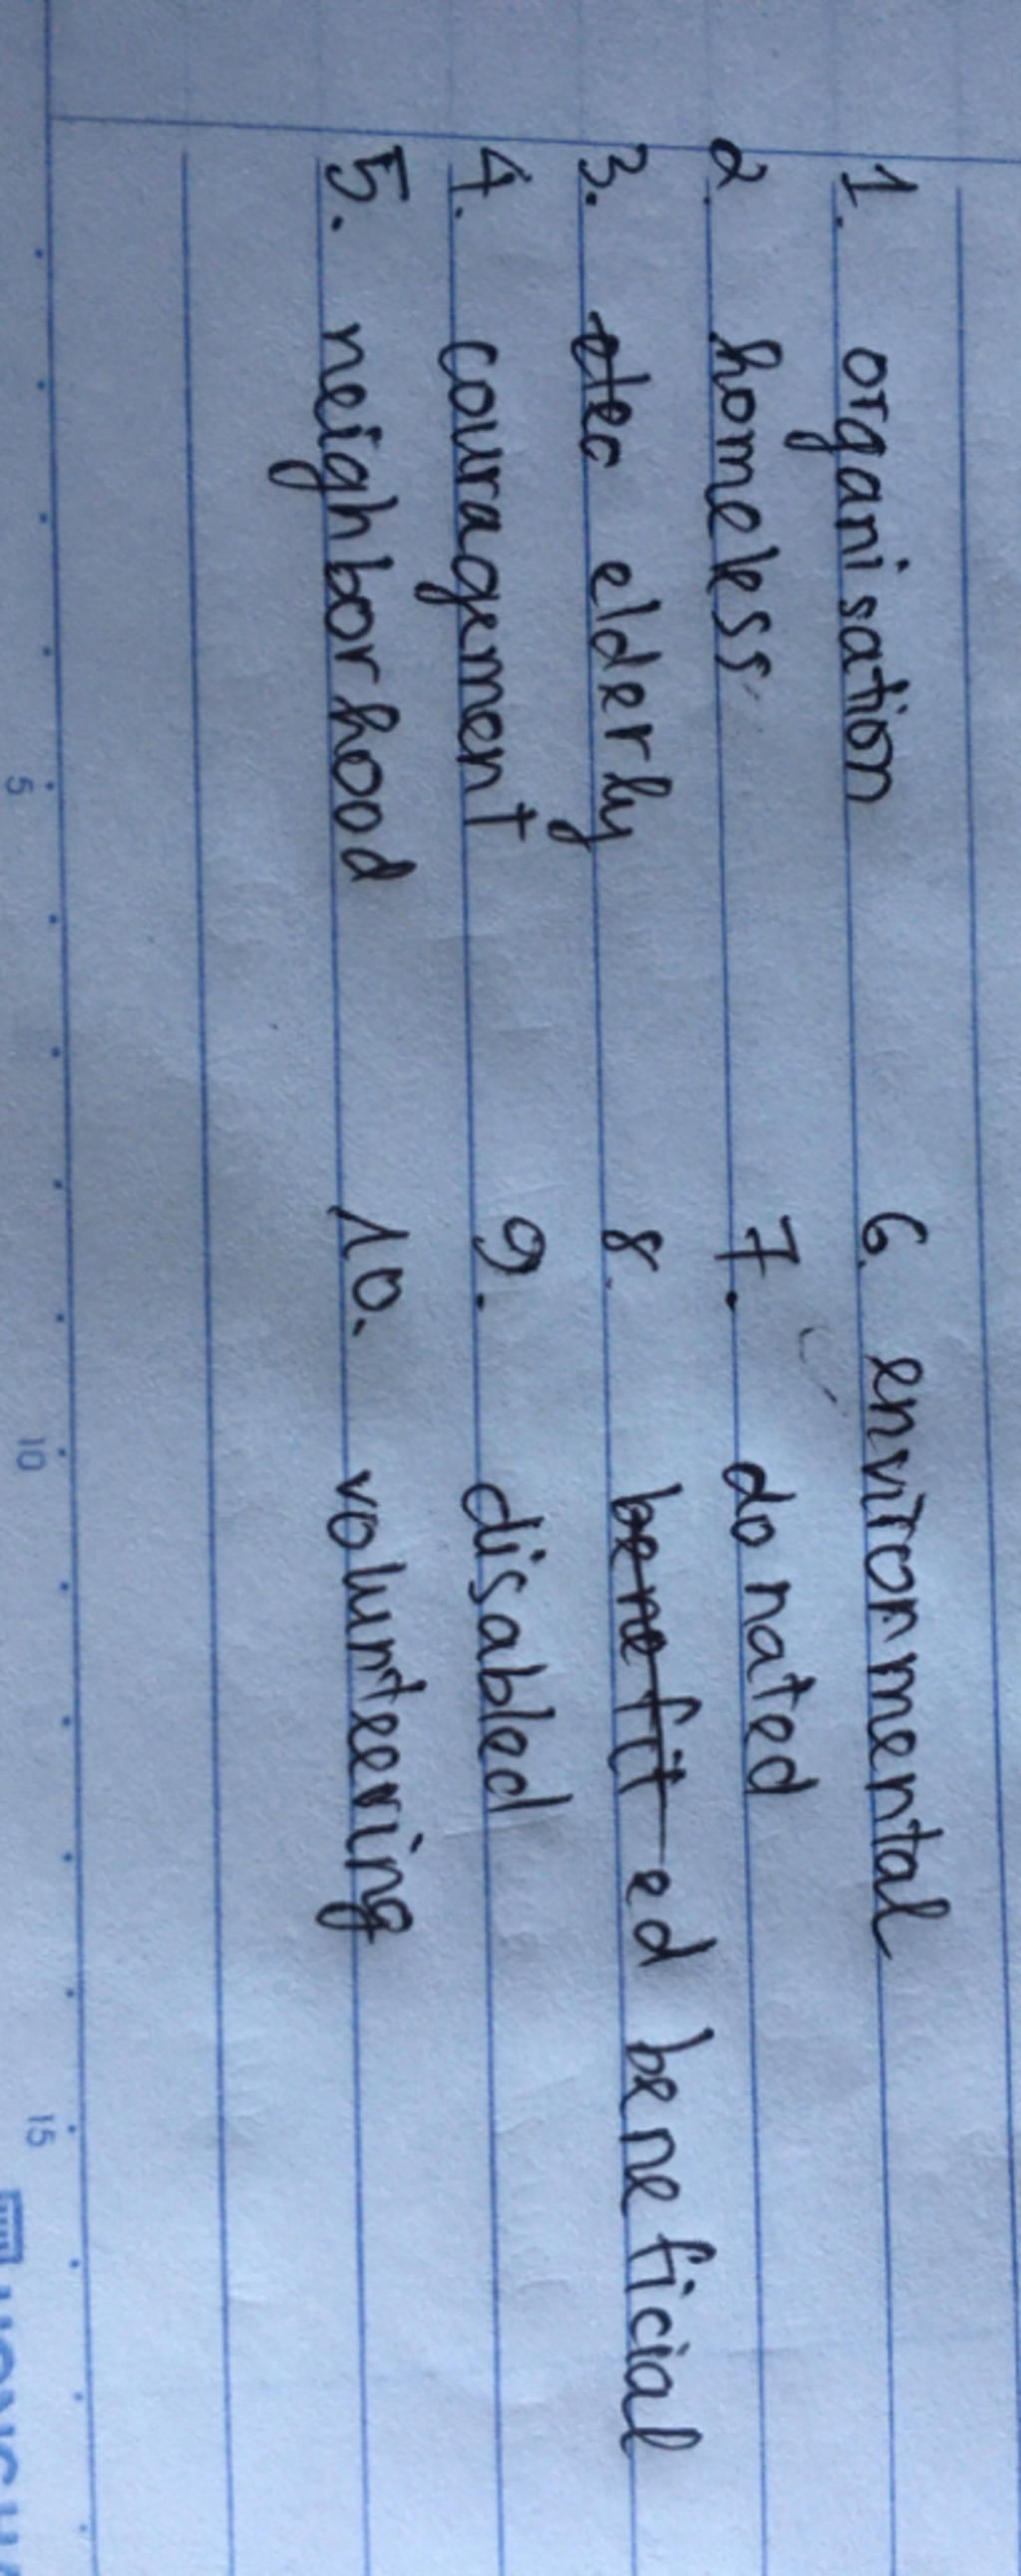 1. organisation 6. environmental
2. homeless 7. donated
3. elec elderly 8. benefited beneficial
4. couragement 9. disabled
5. neighborhood 10. volunteering
5 10 15